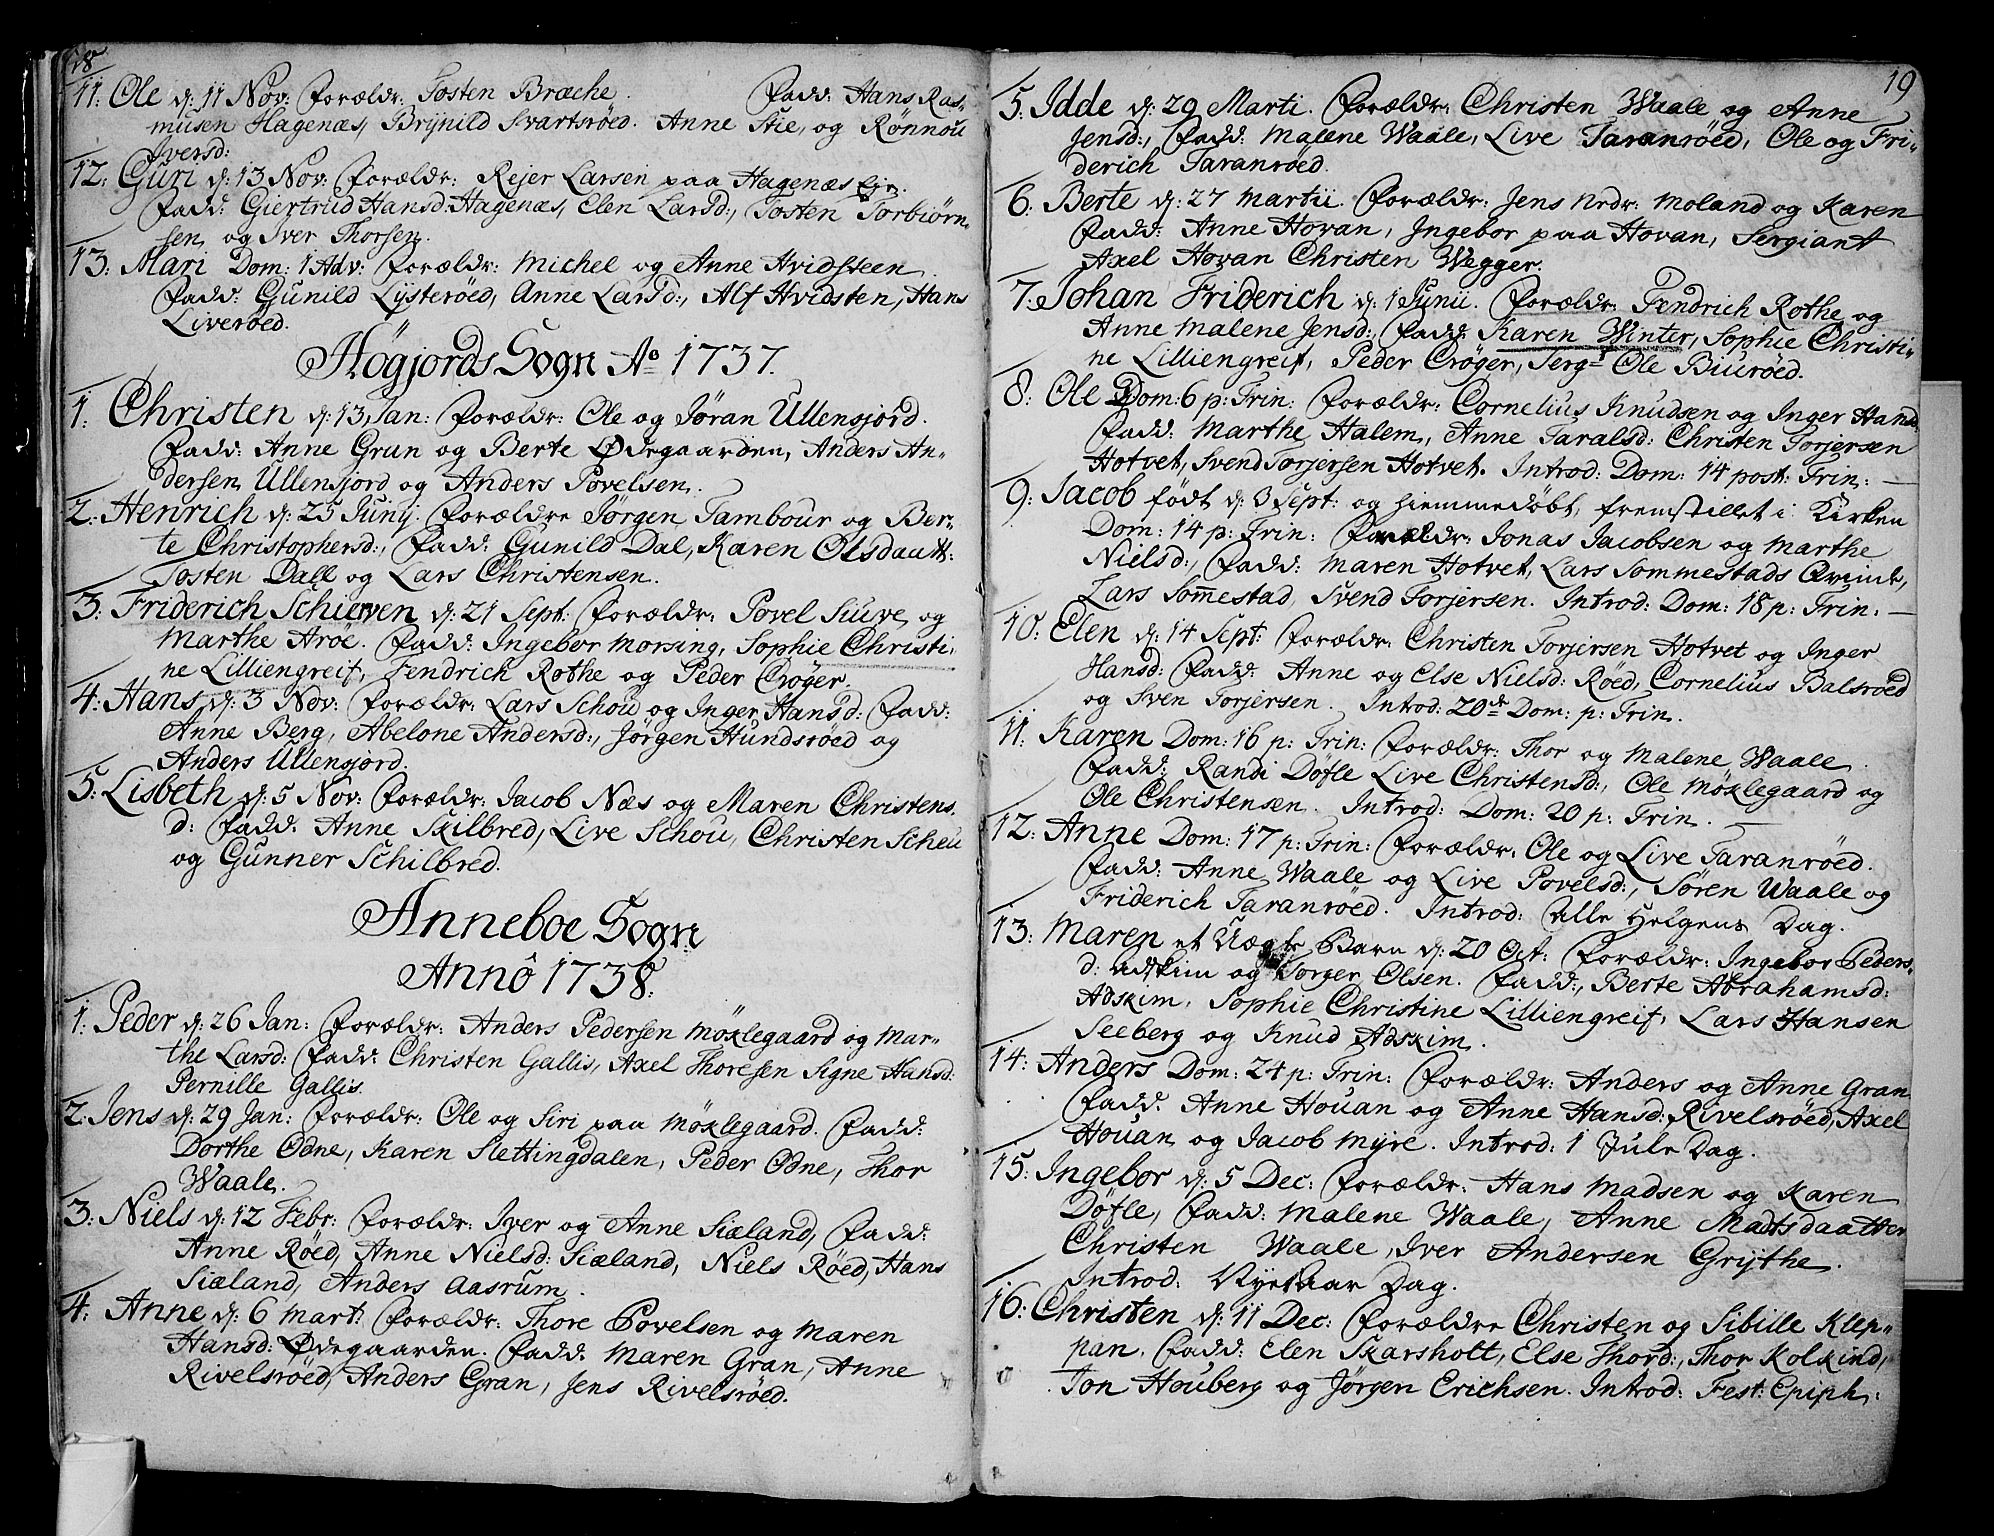 18
11: Ole d: 11 Nov: Forældr: Tosten Bræche. Fadd: Hans Ras-
musen Hagenæs, Brynild Svartsröed. Anne Stie, og Rönnou
Iversd:
12: Guri d: 13 Nov: Forældr: Rejer Larsen paa Hagenæs Eje.
Fadd: Giertrud Hansd: Hagenæs, Elen Larsd:, Tosten Torbiörn-
sen og Iver Thorsen.
13: Mari Dom: 1 Adv: Forældr: Michel og Anne Hvidsteen.
Fadd: Gunild Lysteröed, Anne Larsd:, Alf Hvidsten, Hans
Liveröed.
Högjords Sogn Ao 1737.
1: Christen d: 13 Jan: Forældr: Ole og Jöran Ullensjord.
Fadd: Anne Grun og Berte Ødegaarden, Anders An-
dersen Ullensjord og Anders Povelsen.
2: Henrich d: 25 Junij. Forældre Jörgen Tambour og Ber-
te Christophersd:, Fadd: Gunild Dal, Karen Olsdaatt:
Tosten Dall og Lars Christensen.
3: Friderich Schieven d: 21 Sept: Forældr: Povel Siuve og
Marthe Aröe. Fadd: Ingebor Morsing, Sophie Christi-
ne Lilliengreif, Fendrich Rothe og Peder Cröger.
4: Hans d: 3 Nov: Forældr: Lars Schou og Inger Hansd: Fadd:
Anne Berg, Abelone Andersd:, Jörgen Hundsröed og
Anders Ullensjord.
5: Lisbeth d: 5 Nov: Forældr: Jacob Næs og Maren Christens-
d: Fadd. Anne Skilbred, Live Schou, Christen Scheu
og Gunner Schilbred.
Anneboe Sogn
Annô 1738.
1: Peder d: 26 Jan: Forældr: Anders Pedersen Möklegaard og Mar-
the Larsd: Fadd: Christen Gallis, Axel Thoresen Signe Hansd:
Pernille Gallis.
2. Jens d: 29 Jan: Forældr: Ole og Siri paa Möklegaard. Fadd:
Dorthe Odne, Karen Slettingdalen, Peder Odne, Thor
Waale.
3: Niels d: 12 Febr: Forældr: Iver og Anne Siæland, Fadd:
Anne Röed, Anne Nielsd: Siæland, Niels Röed, Hans
Siæland, Anders Aasrum.
4: Anne d: 6 Mart: Forældr: Thore Povelsen og Maren
Hansd: Ødegaarden. Fadd. Maren Gran, Anne
Rivelsröed, Anders Gran, Jens Rivelsröed.
19
5: Idde d: 29 Marti. Forældr: Christen Waale og Anne
Jensd:, Fadd: Malene Waale, Live Taranröed, Ole og Fri-
derich Taranröed.
6: Berte d: 27 Martii. Forældr: Jens Nrdr: Moland og Karen
Fadd: Anne Hovan, Ingebor paa Hovan, Sergiant
Axel Hovan Christen Wegger.
7: Johan Friderich d: 1 Junii. Forældr: Fendrich Rothe og
Anne Malene Jensd:, Fadd: Karen Winter, Sophie Christi-
ne Lilliengreif, Peder Cröger, Sergt Ole Biuröed.
8: Ole Dom: 6 p: Trin: Forældr: Cornelius Knudsen og Inger Hansd:
Fadd: Marthe Halem, Anne Taralsd: Christen Torjersen
Hotvet, Svend Torjersen Hotvet. Introd: Dom: 14 post: Trin: —
9: Jacob födt d: 3 Sept: og hiemmedöbt, fremstillet i Kirken
Dom: 14 p: Trin: Forældr: Jonas Jacobsen og Marthe
Nielsd:, Fadd: Maren Hotvet, Lars Sommestads Qvinde,
Lars Som̄estad, Svend Torjersen. Introd: Dom: 18 p: Trin: —
10: Elen d: 14 Sept: Forældr: Christen Torjersen Hotvet og Inger
Hansd: Fadd: Anne og Else Nielsd: Röed, Cornelius Balsröed
og Sven Torjersen. Introd: 20de Dom: p: Trin.
11: Karen Dom: 16 p: Trin: Forældr: Thor og Malene Waale.
Fadd: Randi Döfle Live Christensd:, Ole Möklegaard og
Ole Christensen. Introd: Dom: 20 p: Trin. —
12: Anne Dom: 17 p: Trin: Forældr: Ole og Live Taranröed.
Fadd: Anne Waale og Live Povelsd:, Sören Waale og
Friderich Taranröed. Introd: Alle Helgens Dag.
13: Maren et Uægte Barn d: 20 Oct: Forældr: Ingebor Peders-
d: Adskim og Torger Olsen. Fadd:, Berte Abrahamsd:
Adskim, Sophie Christine Lilliengreif, Lars Hansen
Seeberg og Knud Adskim.
14: Anders Dom: 24 p: Trin: Forældr: Anders og Anne Gran
Fadd. Anne Houan og Anne Hansd: Rivelsröed, Axel
Houan og Jacob Myre. Introd: 1 Jule Dag.
15: Ingebor d: 5 Dec: Forældr: Hans Madsen og Karen
Döfle, Fadd: Malene Waale, Anne Madtsdaatter
Christen Waale, Iver Andersen Grythe.
Introd: Nyetaar Dag.
16: Christen d: 11 Dec: Forældre Christen og Sibille Klep-
pan. Fadd: Elen Skarsholt, Else Thord:, Thor Kolkind,
Ton Houberg og Jörgen Erichsen. Introd: Fest: Epiph: